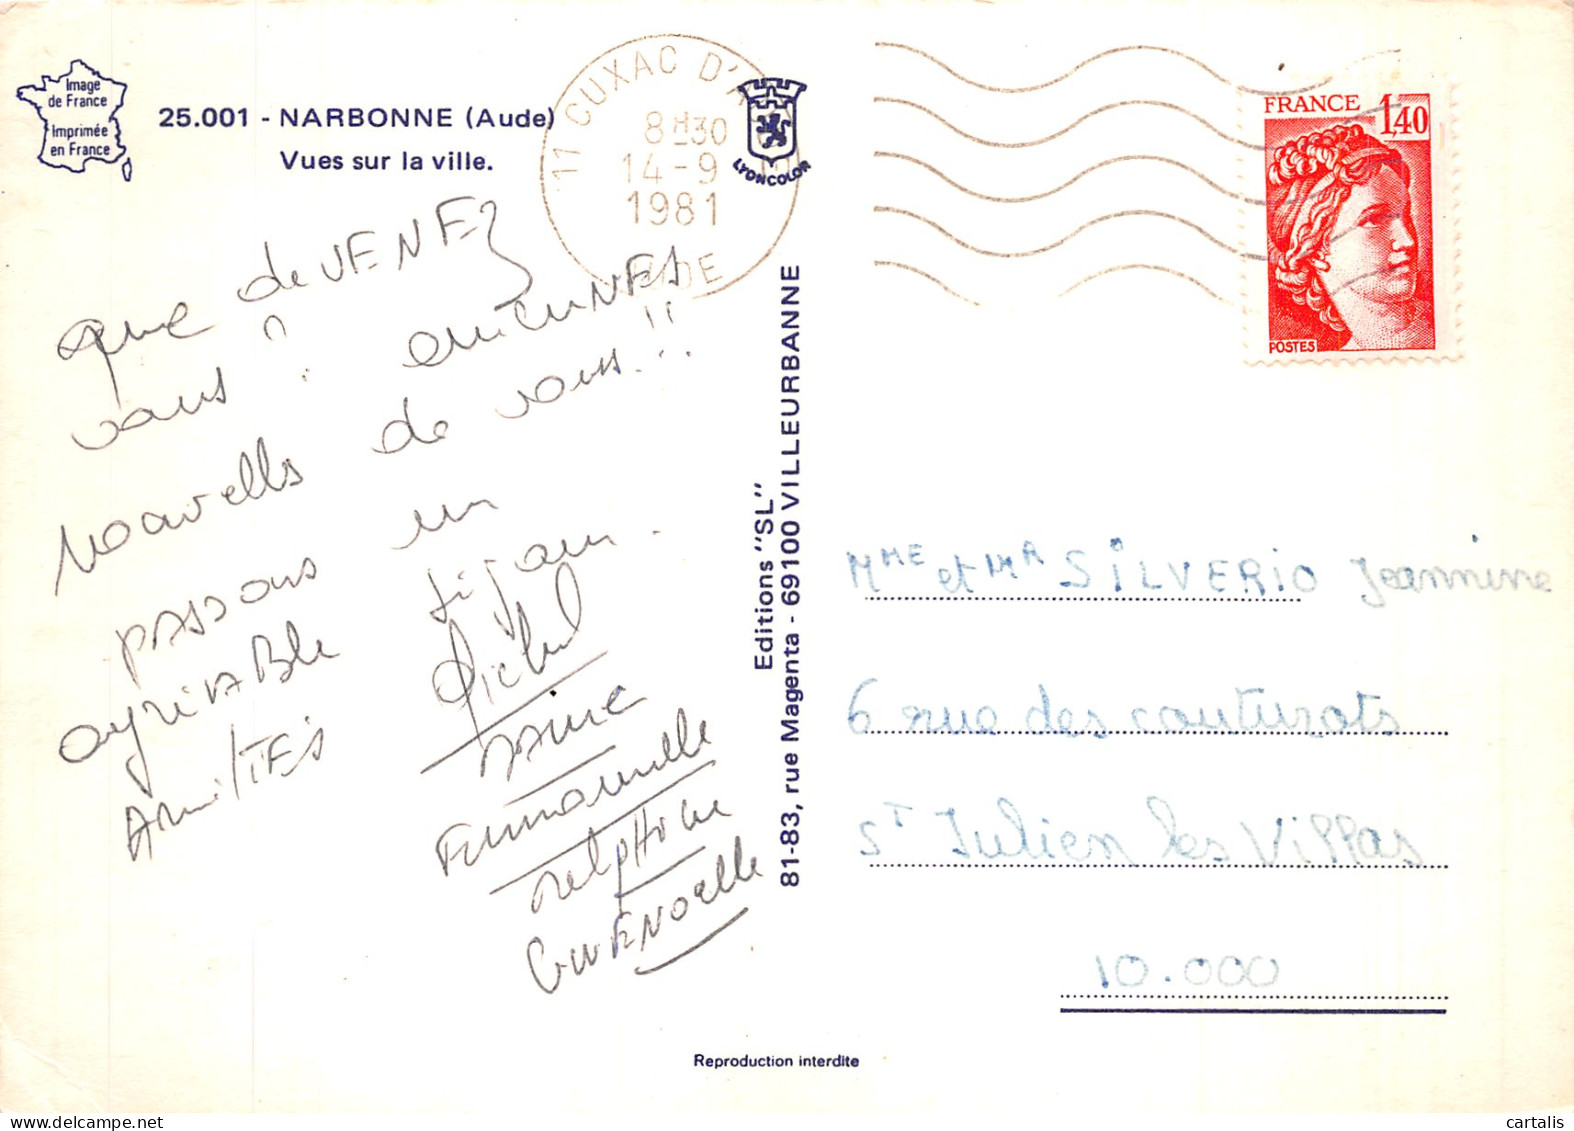 Image
de France
Imprimée
en France
25.001 - NARBONNE (Aude)
Vues sur la ville.
11 CUXAC D'A
8H30
14-9
1981
AUDE
LYONCOLOR
FRANCE 1,40
POSTES
que deVENEZ
vous ? aucuNES
Nouvells de vous..!!
pASSons un
agréABle séjour.
AmiTiES Michel
Emmanuelle
GWENOelle
Editions "SL"
81-83, rue Magenta - 69100 VILLEURBANNE
MME et MR SILVERIO Jeannine
6 rue des couturots
ST Julien les Villas
10.000
Reproduction interdite
cartalis